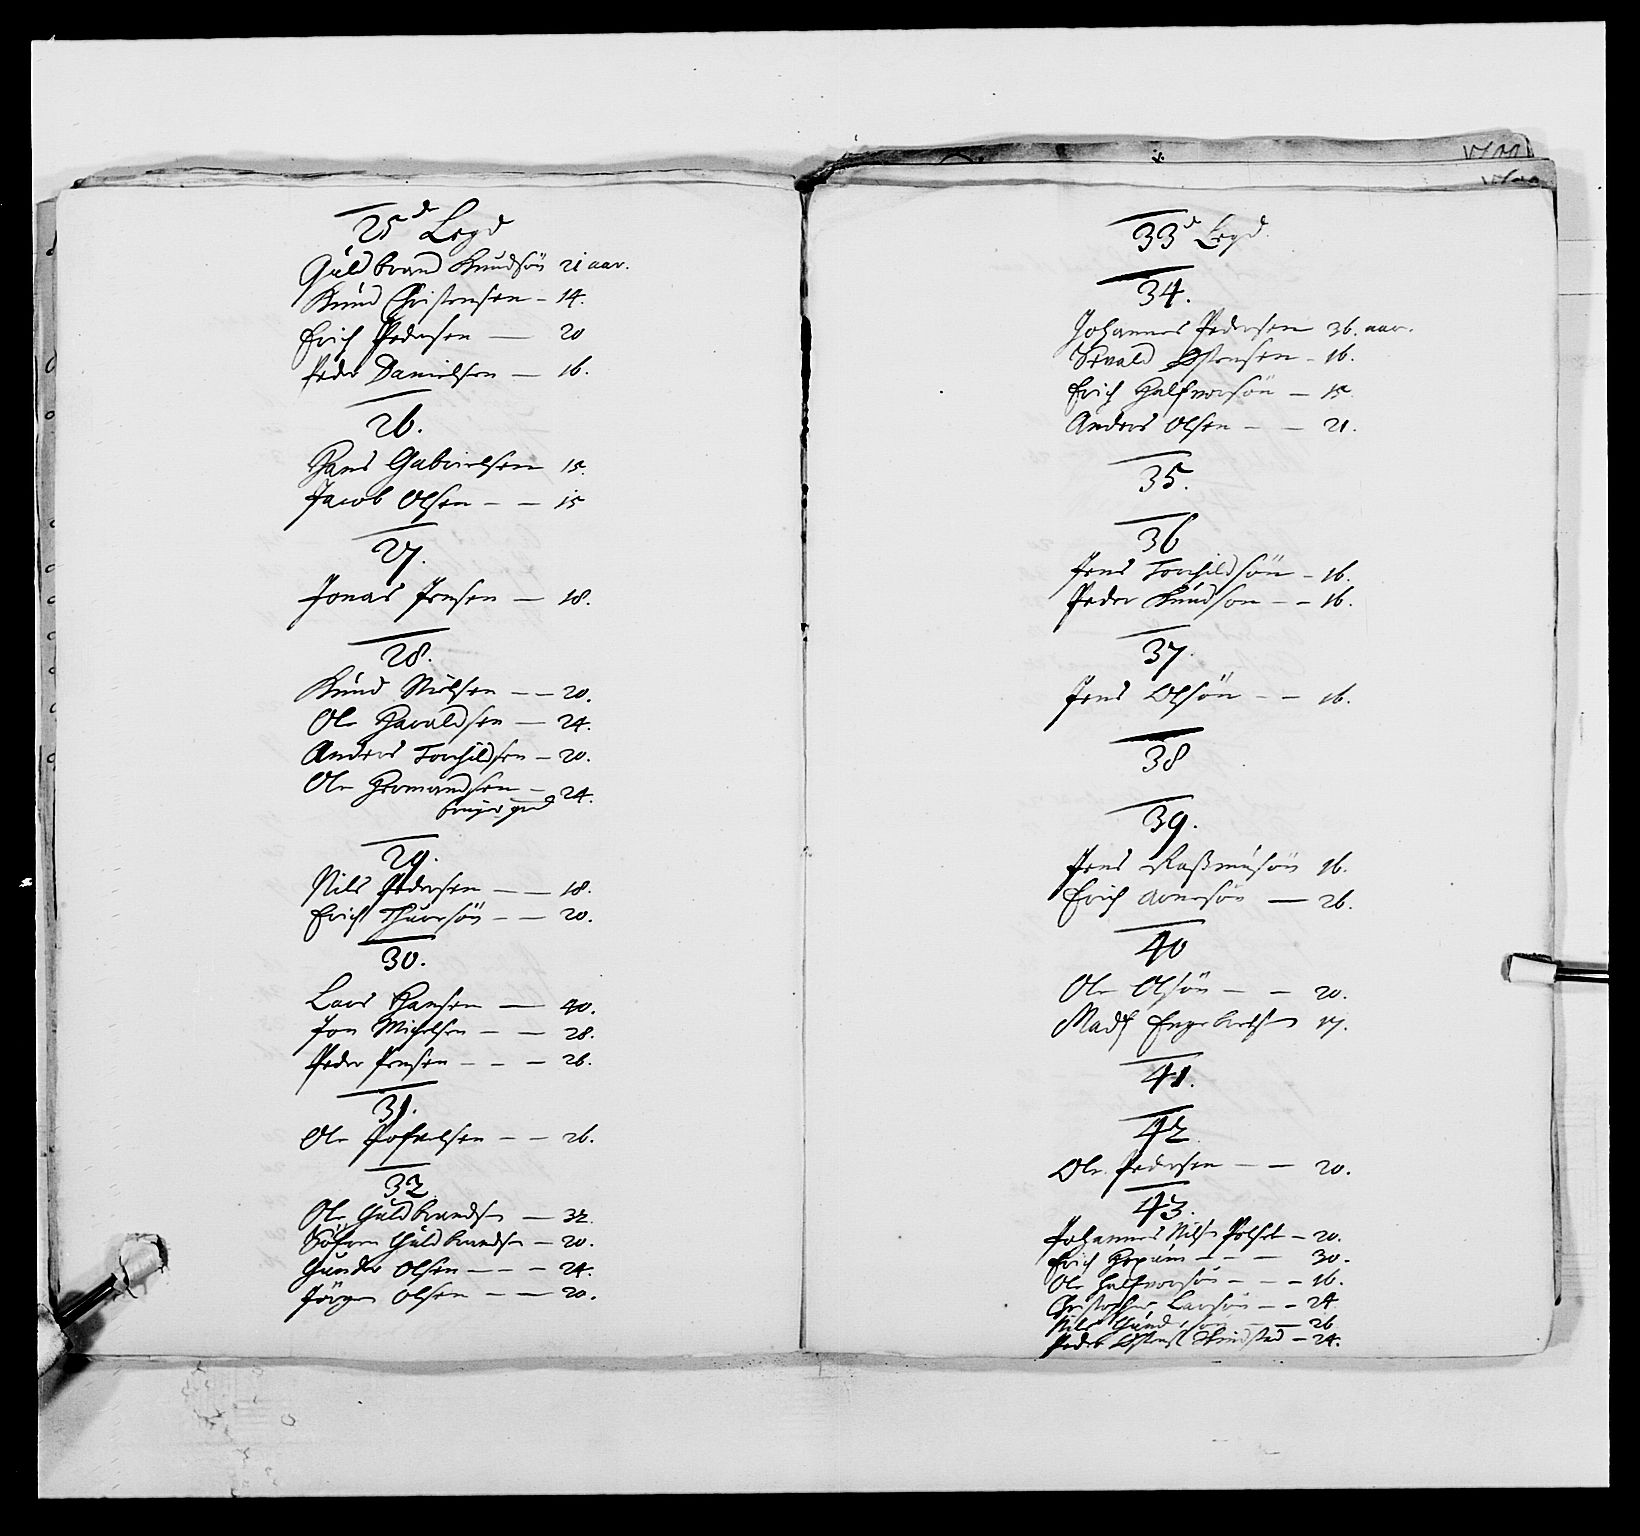 25.d Legd
Guldbrand Knudsön 21 aar.
Knud Christensen – 14.
Erich Pedersen — 20
Peder Danielsen — 16.
26.
Hans Gabrielsen 15.
Jacob Olsen – — 15
27.
Jonas Jensen — 18.
28.
Knud Nielsen – — 20.
Ole Haraldsen — 24.
Anders Torchildsen – 20.
Ole Hermandsen – 24.
29.
Nils Pedersen – — 18.
Erich Thuersön – — 20.
30.
Lars Hansen — 40.
Jon Michelsen – — 28.
Peder Jensen – – — 26.
31.
Ole Pofvelsen – — 26.
32
Ole Guldbrandsen — 32.
Söfren Guldbrandsen – 20.
Gunder Olsen – – – 24.
Jörgen Olsen – — 20.
33d Legd.
34.
Johannes Pedersen 36. aar.
Sevald Ostensen – 16.
Erich Halfvorsön – 15.
Anders Olsen – — 21.
35.
36
Jens Torchildsön – 16.
Peder Knudson – – 16.
37.
Jens Olsön – – 16.
38
39.
Jens Rassmusön 16.
Erich Arnesön — 26.
40
Ole Olsön – – 20.
Mads Engebretsen 17.
41.
42
Ole Pedersen – — 20.
43.
Johannes Nilsen – 20.
Erich – – – 30.
Ole Halfvorsön – – – 16.
Christopher Larsön – – 24
Nils Gundersön – — 26
Peder – 24.